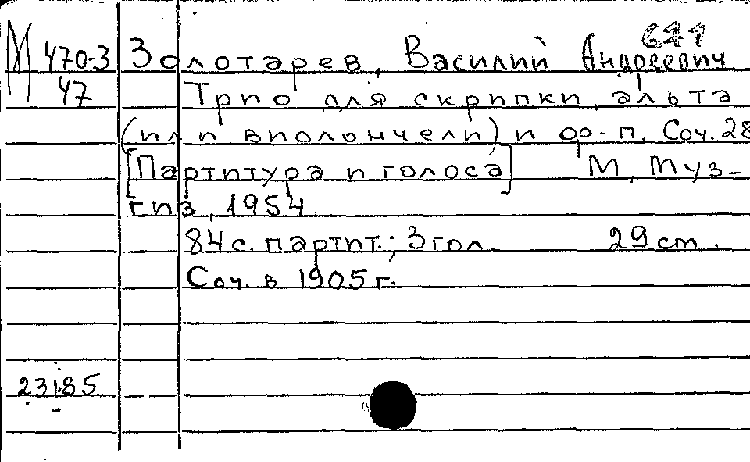 641
М 470-3 Золотарев, Василий Андреевич
47 Трио для скрипки, альта
(или виолончели) и ф-п. Соч. 28
[Партитура и голоса] М., Муз-
гиз, 1954
84 с. партит.; 3 гол. 29 cm.
Соч. в 1905 г.
23185